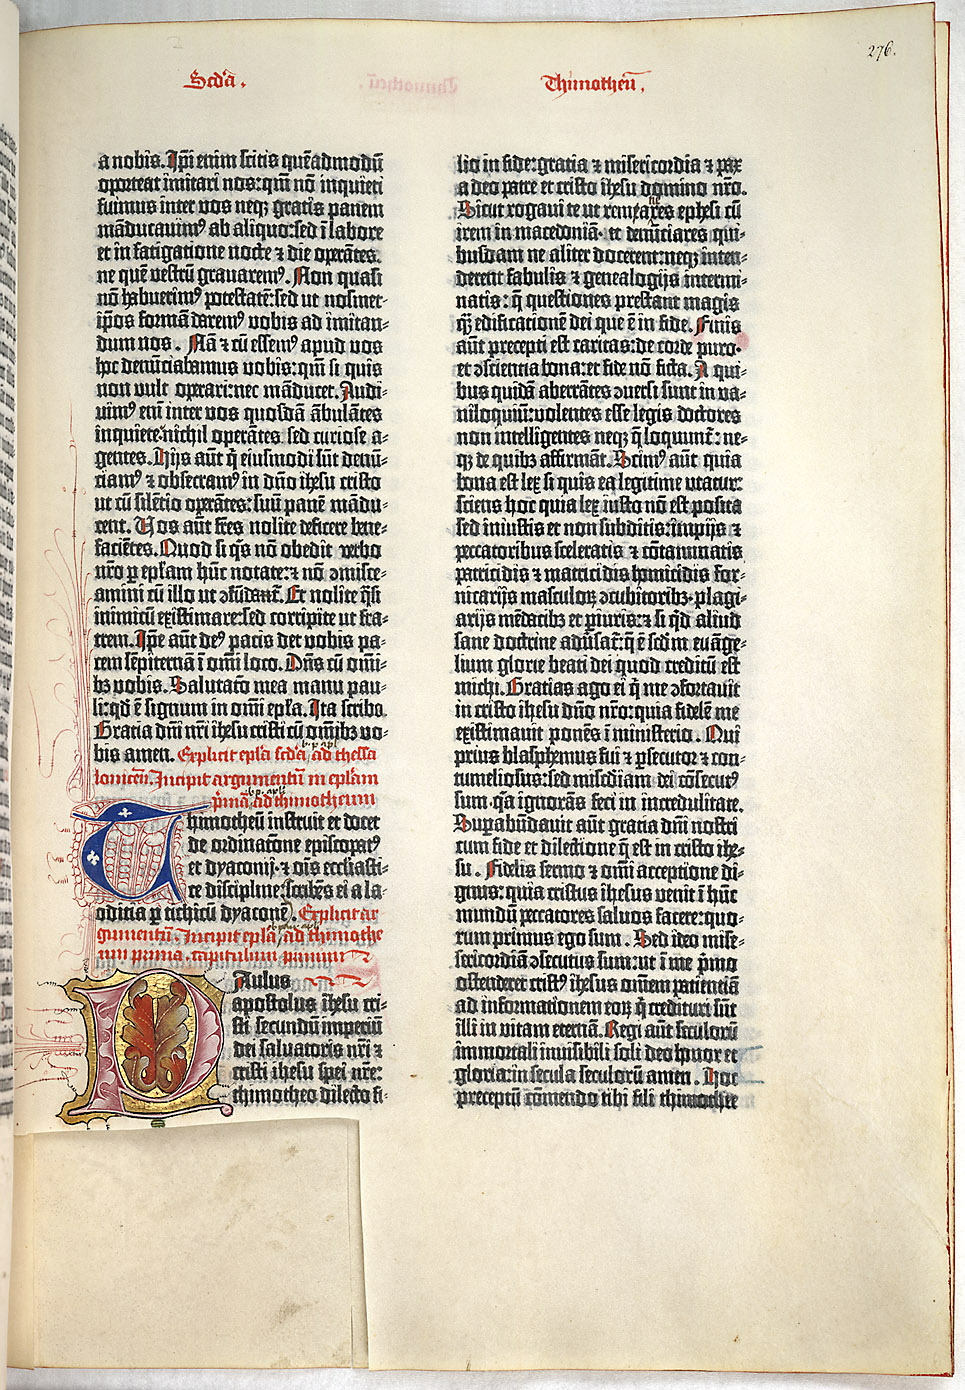 276.
Scďa.
Thimotheū.
a nobis. Ipi enim scitis quēadmodū
oporteat imitari nos: qm̄ nō inquieti
fuimus inter vos neqꝫ gratis panem
māducauimꝰ ab aliquo: sed ī labore
et in fatigatione nocte ⁊ die operātes.
ne quē vestrū grauaremꝰ. Non quasi
nō habuerimꝰ potestatē: sed ut nosmet-
ipōs formā daremꝰ vobis ad imitan-
dum nos. Nā ⁊ cū essemꝰ apud vos
hoc denūciabamus vobis: qm̄ si quis
non vult operari: nec māducet. Audi-
uimꝰ enī inter vos quosdā ābulātes
inquiete: nichil operātes sed curiose a-
gentes. Hijs aūt q̄ eiusmodi sūt denū-
ciamꝰ ⁊ obsecramꝰ in dn̄o ihesu cristo
ut cū silētio operātes: suū panē mādu-
cent. Vos aūt fr̄es nolite deficere bene-
faciētes. Quod si q̄s nō obedit verbo
nr̄o ꝑ epl̄am hūc notate: ⁊ nō ɔmisce-
amini cū illo ut ɔfūdat̄. Et nolite q̄si
inimicū existimare: sed corripite ut fra-
trem. Ipē aūt deꝰ pacis det vobis pa-
cem sēpiternā ī om̄i loco. Dn̄s cū om̄i-
bꝫ vobis. Salutat̄o mea manu pau-
li: qd̄ ē signum in om̄i epl̄a. Ita scribo.
Gratia dn̄i nr̄i ihesu cristi cū om̄ibꝫ vo-
bis amen. Explicit epl̄a scďa ad thessa
lonicen̄. Incipit argumentū in epl̄am
p̄mā ad thimotheum
Thimotheū instruit et docet
de ordinatōne episcopatꝰ
et dyaconij. ⁊ oīs ecclesiasti-
ce discipline: scribēs ei a la-
odicia ꝑ tichicū dyaconē. Explicit ar
gumentū. Incipit epl̄a ad thimothe
um prima. capitulum primum
Paulus
apostolus ihesu cri-
sti secundū imperiū
dei saluatoris nr̄i ⁊
cristi ihesu spei nr̄e:
thimotheo dilecto fi-
lio in fide: gratia ⁊ misericordia ⁊ pax
a deo patre et cristo ihesu domino nr̄o.
Sicut rogaui te ut remaneres ephesi cū
irem in macedoniā. et denūciares qui-
busdam ne aliter docerent: neqꝫ inten-
derent fabulis ⁊ genealogijs intermi-
natis: q̄ questiones prestant magis
qȝ edificationē dei que ē in fide. Finis
aūt precepti est caritas: de corde puro.
et ɔscientia bona: et fide nō ficta. A qui-
bus quidā aberrātes ɔuersi sunt in va-
niloquiū: volentes esse legis doctores
non intelligentes neqꝫ q̄ loquunt̄: ne-
qꝫ de quibꝫ affirmāt. Scimꝰ aūt quia
bona est lex si quis ea legitime utatur:
sciens hoc quia lex iusto nō est posita
sed iniustis et non subditis: impijs ⁊
peccatoribus sceleratis ⁊ cōtaminatis
patricidis ⁊ matricidis homicidis for-
nicarijs masculoꝝ ɔcubitoribꝫ. plagi-
arijs mēdacibꝫ et ꝑiuris: ⁊ si qd̄ aliud
sane doctrine adūsat̄: q̄ ē scd̄m euāge-
lium glorie beati dei quod creditū est
michi. Gratias ago ei q̄ me ɔfortauit
in cristo ihesu dn̄o nr̄o: quia fidelē me
existimauit ponēs ī ministerio. Qui
prius blasphemus fui ⁊ ꝑsecutor ⁊ con-
tumeliosus: sed misc̄diam dei cōsecutꝰ
sum. q̄a ignorās feci in incredulitate.
Suꝑabūdauit aūt gratia dn̄i nostri
cum fide et dilectione q̄ est in cristo ihe-
su. Fidelis sermo ⁊ om̄i acceptione di-
gnus: quia cristus ihesus venit ī hūc
mundū peccatores saluos facere: quo-
rum primus ego sum. Sed ideo mise-
sericordiā ɔsecutus sum: ut ī me p̄mo
ostenderet cristꝰ ihesus om̄em patientiā
ad informationem eoꝝ q̄ credituri sūt
illi in vitam eternā. Regi aūt seculorū
immortali inuisibili soli deo honor et
gloria: in secula seculorū amen. Hoc
preceptū cōmendo tibi fili thimothee